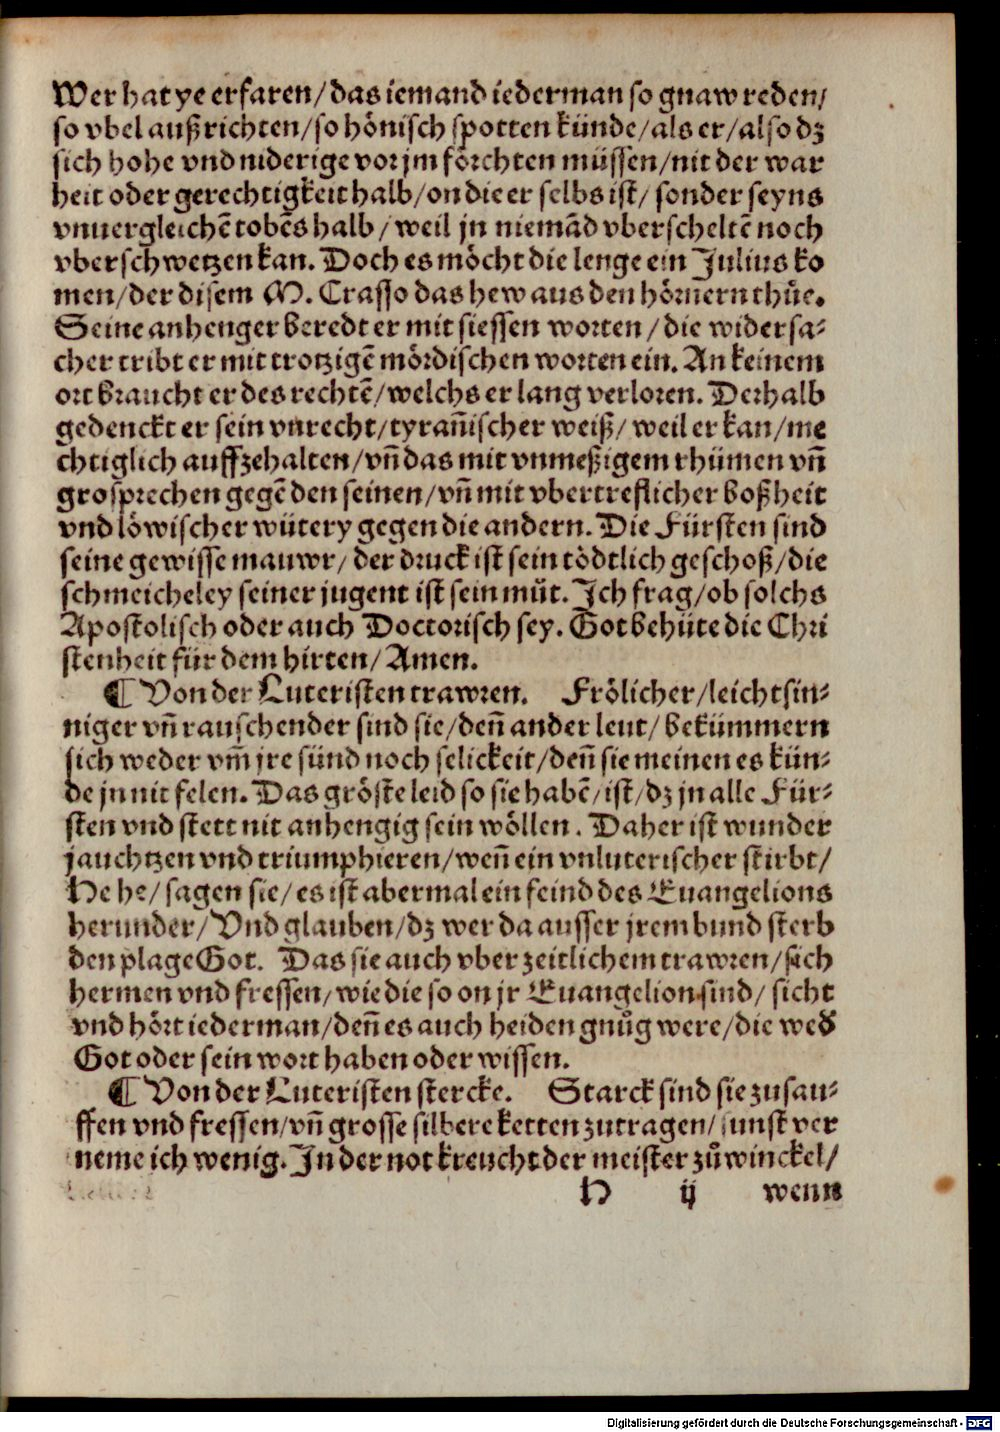 Wer hat ye erfaren/das iemand iederman so gnaw reden/
so vbel außrichten/so hönisch spotten künde/als er/also dz
sich hohe vnd niderige vor jm förchten müssen/nit der war
heit oder gerechtigkeit halb/on die er selbs ist/ sonder seyns
vnuergleichē tobēs halb/ weil jn niemād vberscheltē noch
vberschwetzen kan. Doch es möcht die lenge ein Julius ko
men/der disem M. Crasso das hew aus den hörnern thüe.
Seine anhenger beredt er mit siessen worten/die widersa⸗
cher tribt er mit trotzigē mördischen worten ein. An keinem
ort braucht er des rechtē/welchs er lang verloren. Derhalb
gedenckt er sein vnrecht/tyran̄ischer weiß/ weil er kan/me
chtiglich auffzehalten/vn̄ das mit vnmeßigem rhümen vn̄
grosprechen gegē den seinen/vn̄ mit vbertreflicher boßheit
vnd löwischer wütery gegen die andern. Die Fürsten sind
seine gewisse mauwr/ der druck ist sein tödtlich geschoß/die
schmeicheley seiner jugent ist sein můt. Ich frag/ob solchs
Apostolisch oder auch Doctorisch sey. Got behüte die Chri
stenheit für dem hirten/Amen.
¶ Von der Luteristen trawren. Frölicher/leichtsin⸗
niger vn̄ rauschender sind sie/den̄ ander leut/ bekümmern
sich weder vm̄ jre sünd noch selickeit/den̄ sie meinen es kün⸗
de jn nit felen. Das gröste leid so sie habē/ist/dz jn alle Für⸗
sten vnd stett nit anhengig sein wöllen. Daher ist wunder
jauchtzen vnd triumphieren/wen̄ ein vnluterischer stirbt/
He he/ sagen sie/ es ist abermal ein feind des Euangelions
herunder/Vnd glauben/dz wer da ausser jrem bund sterb
den plage Got. Das sie auch vber zeitlichem trawren/sich
hermen vnd fressen/wie die so on jr Euangelion sind/ sicht
vnd hört iederman/den̄ es auch heiden gnůg were/die wed̕
Got oder sein wort haben oder wissen.
¶ Von der Luteristen stercke. Starck sind sie zu sau⸗
ffen vnd fressen/vn̄ grosse silbere ketten zutragen/sunst ver
neme ich wenig. In der not kreucht der meister zů winckel/
H ij wenn
Digitalisierung gefördert durch die Deutsche Forschungsgemeinschaft - DFG